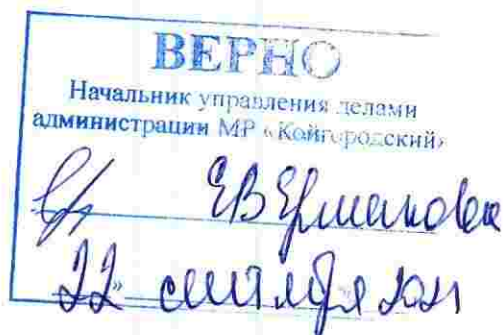 ВЕРНО
Начальник управления делами
администрации МР «Койгородский»
ЕВ Ермакова
22 » сентября 2021